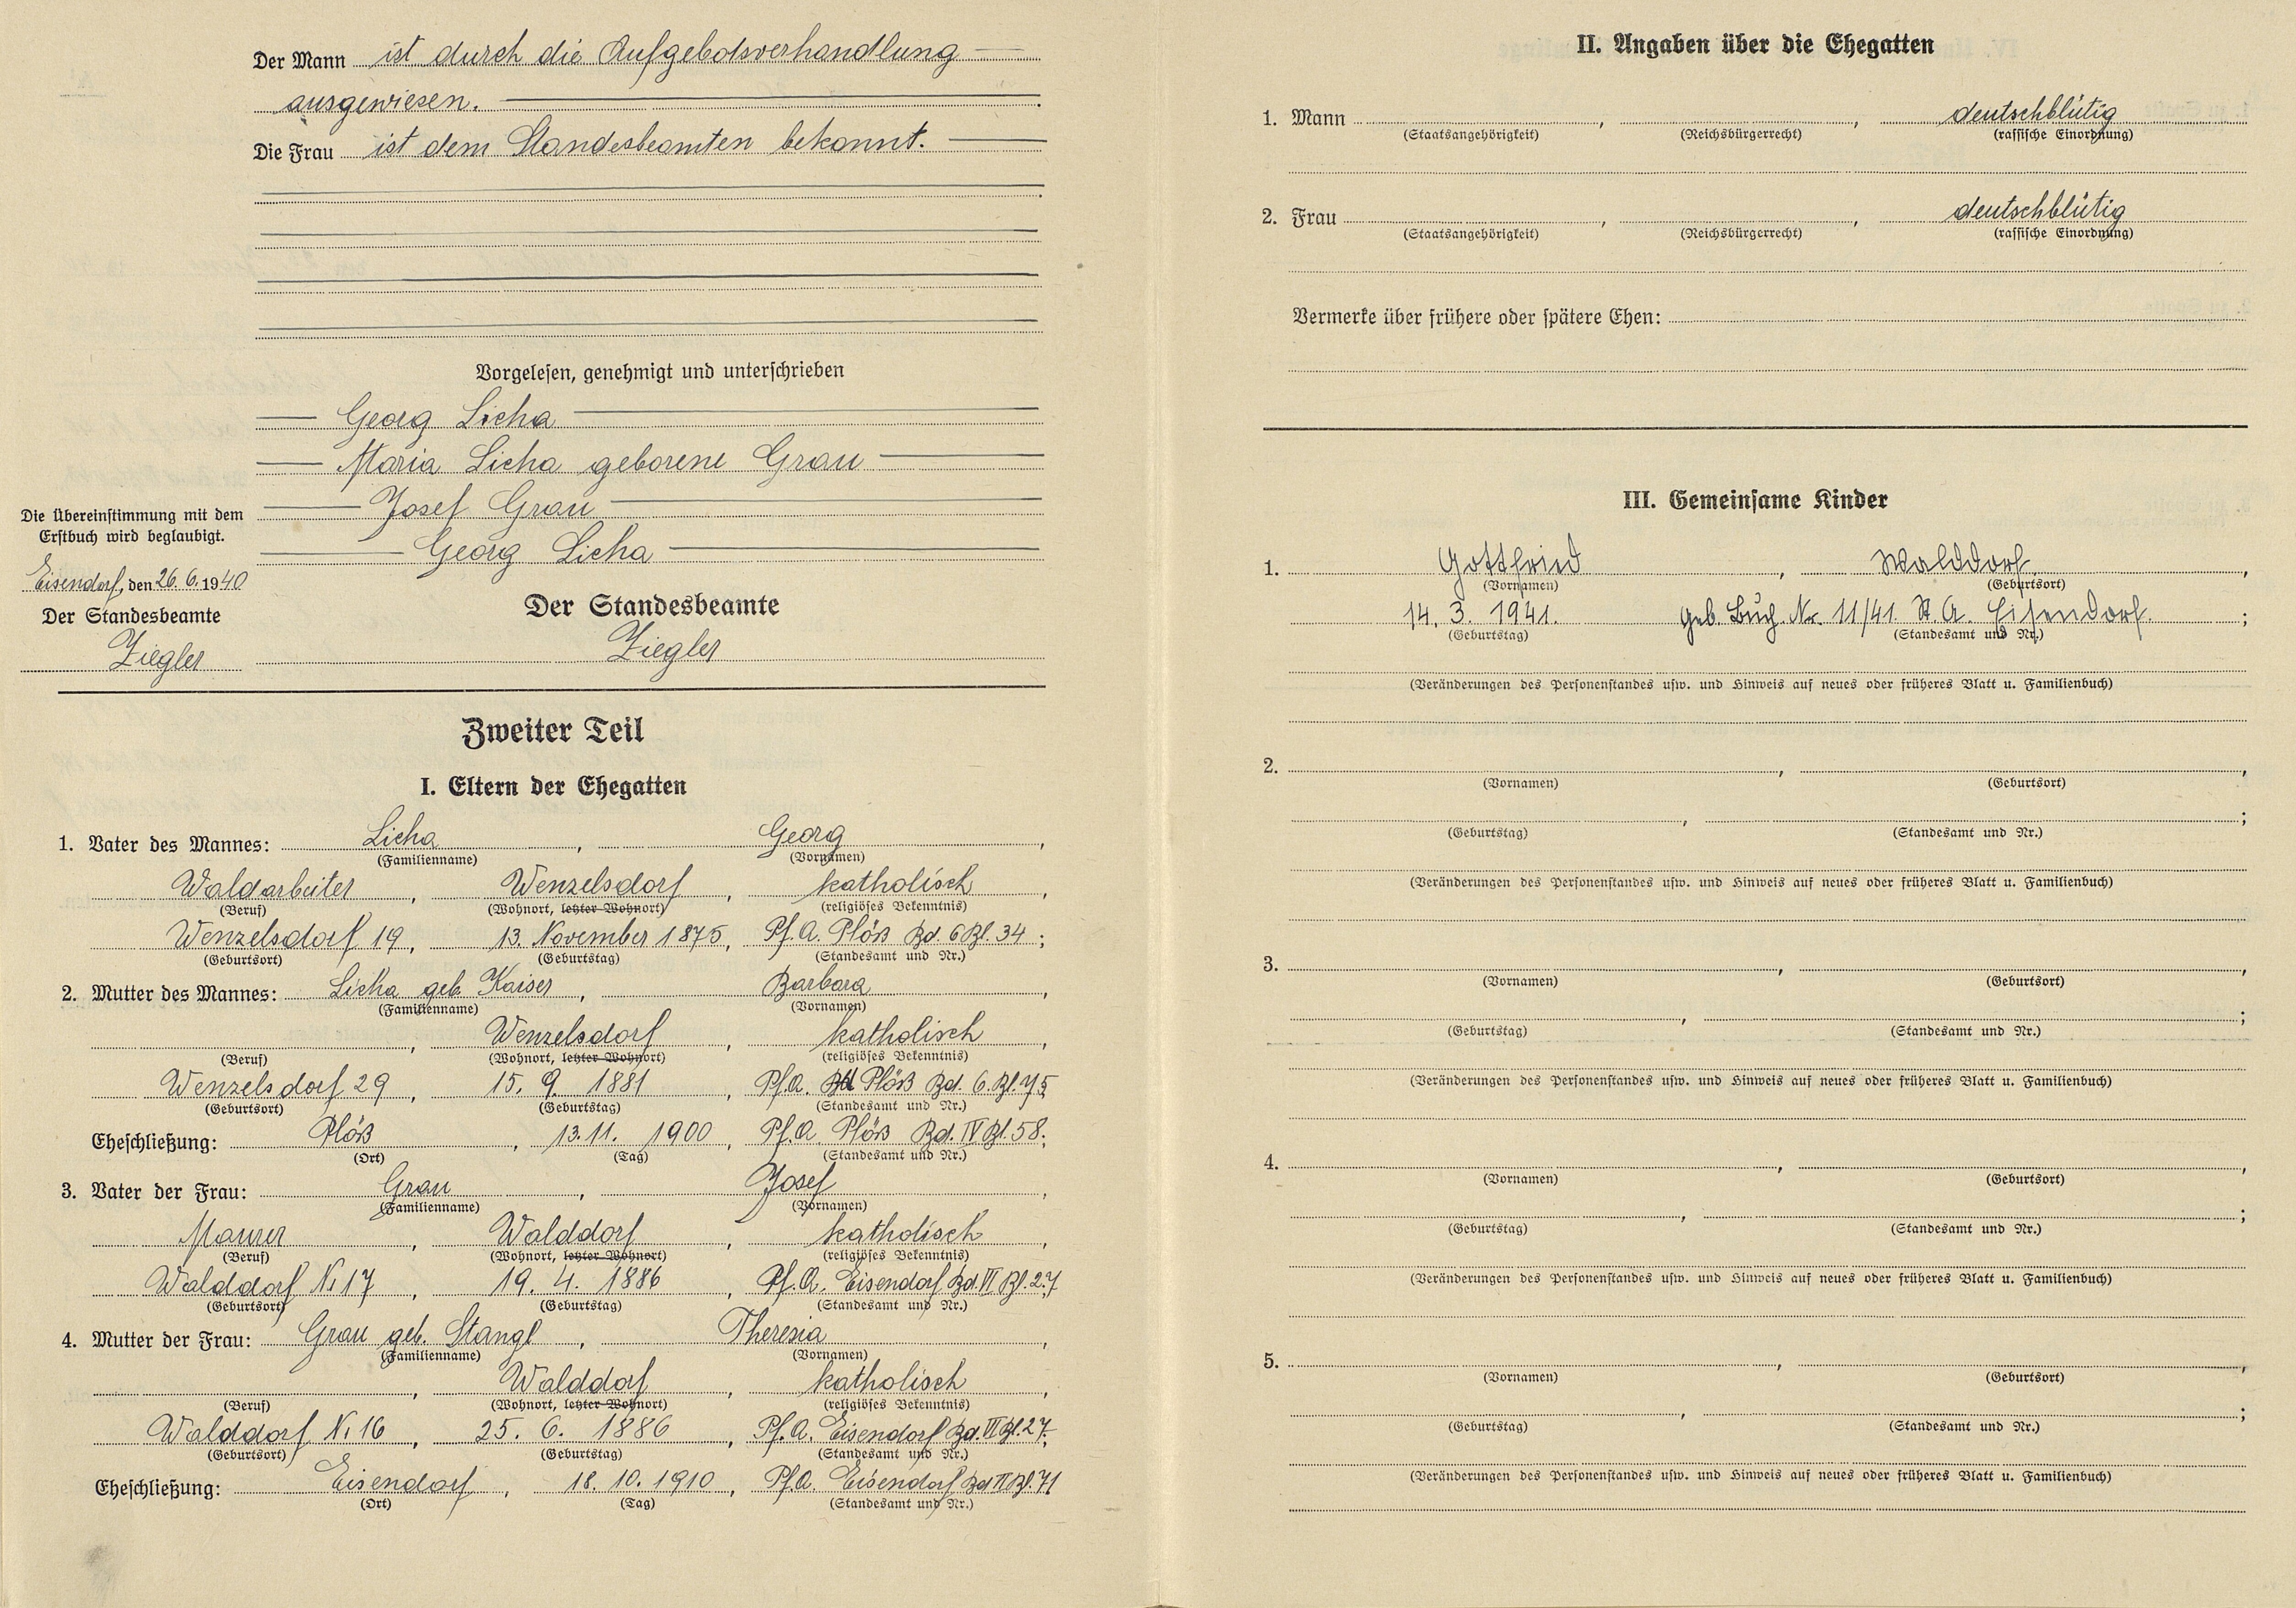 Der Mann ist durch die Aufgebotsverhandlung
ausgewiesen.
Die Frau ist dem Standesbeamten bekannt.
Vorgelesen, genehmigt und unterschrieben
Georg Licha
Maria Licha geborene Grau
Josef Grau
Georg Licha
Die Übereinstimmung mit dem
Erstbuch wird beglaubigt.
Eisendorf, den 26. 6. 1940
Der Standesbeamte
Ziegler
Der Standesbeamte
Ziegler
Zweiter Teil
I. Eltern der Ehegatten
1. Vater des Mannes: Licha, Georg,
(Familienname) (Vornamen)
Waldarbeiter, Wenzelsdorf, katholisch,
(Beruf) (Wohnort, letzter Wohnort) (religiöses Bekenntnis)
Wenzelsdorf 19, 13. November 1875, Pf. A. Plöß Bd. 6 Bl. 34;
(Geburtsort) (Geburtstag) (Standesamt und Nr.)
2. Mutter des Mannes: Licha geb. Kaiser, Barbara,
(Familienname) (Vornamen)
, Wenzelsdorf, katholisch,
(Beruf) (Wohnort, letzter Wohnort) (religiöses Bekenntnis)
Wenzelsdorf 29, 15. 9. 1881, Pf. A. Plöß Bd. 6. Bl. 75;
(Geburtsort) (Geburtstag) (Standesamt und Nr.)
Eheschließung: Plöß, 13. 11. 1900, Pf. A. Plöß Bd. IV Bl. 58;
(Ort) (Tag) (Standesamt und Nr.)
3. Vater der Frau: Grau, Josef,
(Familienname) (Vornamen)
Maurer, Walddorf, katholisch,
(Beruf) (Wohnort, letzter Wohnort) (religiöses Bekenntnis)
Walddorf N. 17, 19. 4. 1886, Pf. A. Eisendorf Bd. VI Bl. 27
(Geburtsort) (Geburtstag) (Standesamt und Nr.)
4. Mutter der Frau: Grau geb. Stangl, Theresia,
(Familienname) (Vornamen)
, Walddorf, katholisch,
(Beruf) (Wohnort, letzter Wohnort) (religiöses Bekenntnis)
Walddorf N. 16, 25. 6. 1886, Pf. A. Eisendorf Bd. VI Bl. 27;
(Geburtsort) (Geburtstag) (Standesamt und Nr.)
Eheschließung: Eisendorf, 18. 10. 1910, Pf. A. Eisendorf Bd II Bl. 71
(Ort) (Tag) (Standesamt und Nr.)
II. Angaben über die Ehegatten
1. Mann , , deutschblütig
(Staatsangehörigkeit) (Reichsbürgerrecht) (rassische Einordnung)
2. Frau , , deutschblütig
(Staatsangehörigkeit) (Reichsbürgerrecht) (rassische Einordnung)
Vermerke über frühere oder spätere Ehen:
III. Gemeinsame Kinder
1. Gottfried, Walddorf,
(Vornamen) (Geburtsort)
14. 3. 1941. Geb. Buch. Nr. 11/41. St. A. Eisendorf. ;
(Geburtstag) (Standesamt und Nr.)
(Veränderungen des Personenstandes usw. und Hinweis auf neues oder früheres Blatt u. Familienbuch)
2. , ,
(Vornamen) (Geburtsort)
, ;
(Geburtstag) (Standesamt und Nr.)
(Veränderungen des Personenstandes usw. und Hinweis auf neues oder früheres Blatt u. Familienbuch)
3. , ,
(Vornamen) (Geburtsort)
, ;
(Geburtstag) (Standesamt und Nr.)
(Veränderungen des Personenstandes usw. und Hinweis auf neues oder früheres Blatt u. Familienbuch)
4. , ,
(Vornamen) (Geburtsort)
, ;
(Geburtstag) (Standesamt und Nr.)
(Veränderungen des Personenstandes usw. und Hinweis auf neues oder früheres Blatt u. Familienbuch)
5. , ,
(Vornamen) (Geburtsort)
, ;
(Geburtstag) (Standesamt und Nr.)
(Veränderungen des Personenstandes usw. und Hinweis auf neues oder früheres Blatt u. Familienbuch)